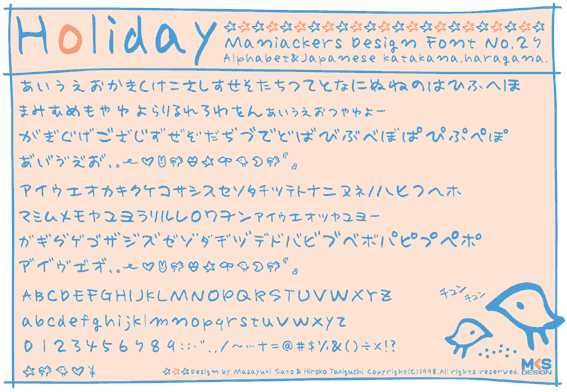 Holiday
☆☆☆☆☆☆☆☆☆☆☆☆☆☆☆☆☆☆☆☆☆☆☆
Maniackers Design Font No.29
Alphabet&Japanese katakana,haragana.
あいうえおかきくけこさしすせそたちつてとなにぬねのはひふへほ
まみむめもやゆよらりるれろわをんぁぃぅぇぉっゃゅょー
がぎぐげござじずぜぞだぢづでどばびぶべぼぱぴぷぺぽ
アイウエオカキクケコサシスセソタチツテトナニヌネノハヒフヘホ
マミムメモヤユヨラリルレロワヲンァィゥェォッャュョー
ガギグゲゴザジズゼゾダヂヅデドバビブベボパピプペポ
ABCDEFGHIJKLMNOPQRSTUVWXYZ
abcdefghijklmnopqrstuvwxyz
0123456789::·¨.,/~…+=@#$%&()÷×!?
チュン
チュン
☆☆Design by Masayuki Sato & Hiroko Takiguchi Copyright(C)1998.All rights reserved.
MKS
DESIGN